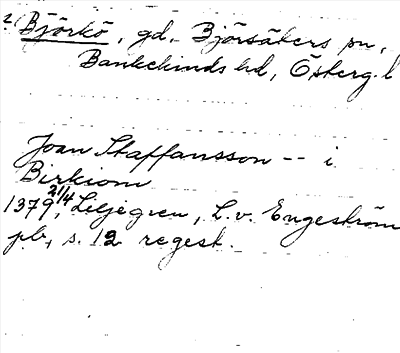 ? Björkö, gd. Björsäters sn,
Bankekinds hd, Österg. l
Joan Staffansson -- i
Birkiom
1379 21/4, Liljegren, L. v. Engeström
pb, s. 12 regest.